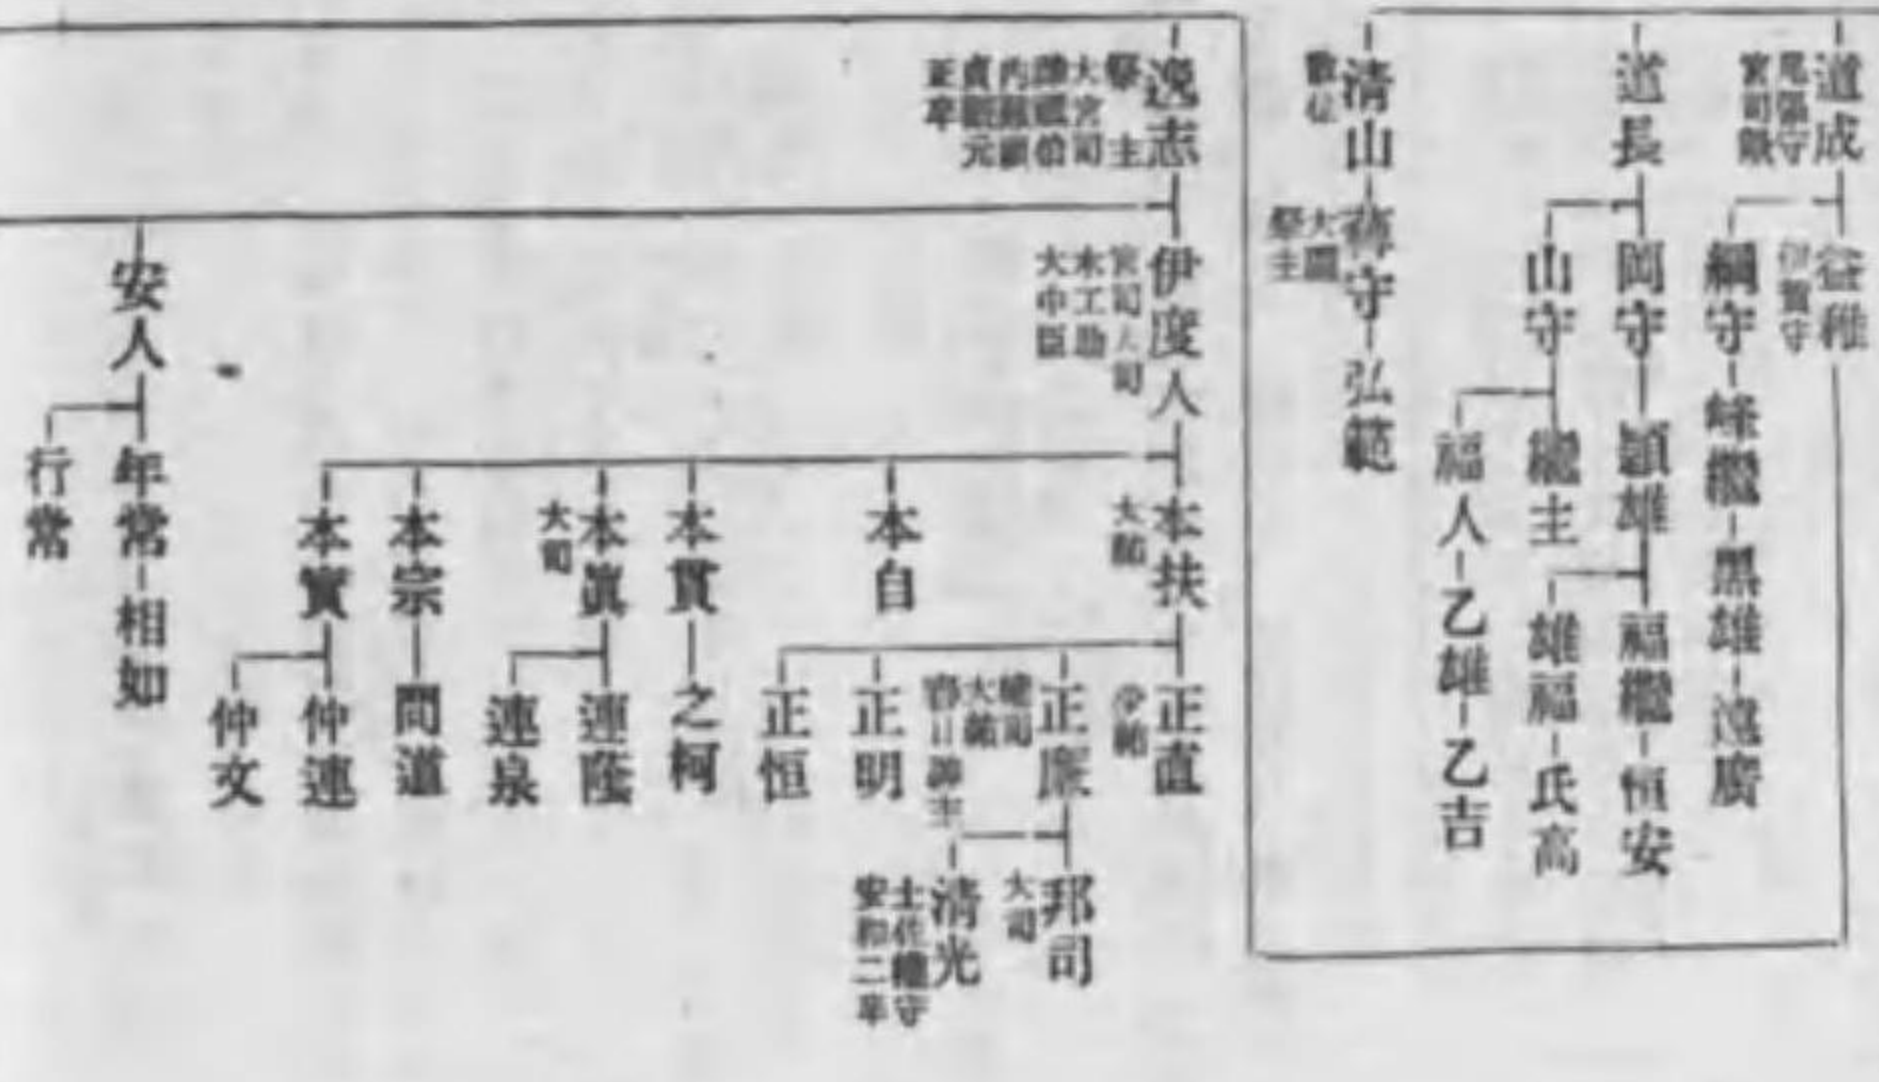 道成
尾張守
宮司
益稚
伊賀守
綱守
峰繼
黒雄
遠廣
道長
岡守
頴雄
福繼
恒安
雄福
氏高
山守
繼主
福人
乙雄
乙吉
清山
散位
守
弘範
大
祭主
逸志
祭主
大宮司
内
貞觀元
正卒
伊度人
宮司大司
木工助
大中臣
本扶
大祐
正直
少祐
正廉
權司
大祐
春日神主
邦司
大司
清光
土佐權守
安和二卒
正明
正恒
本自
本貫
之柯
本眞
大司
連蔭
連泉
本宗
問道
本實
仲連
仲文
安人
年常
相如
行常